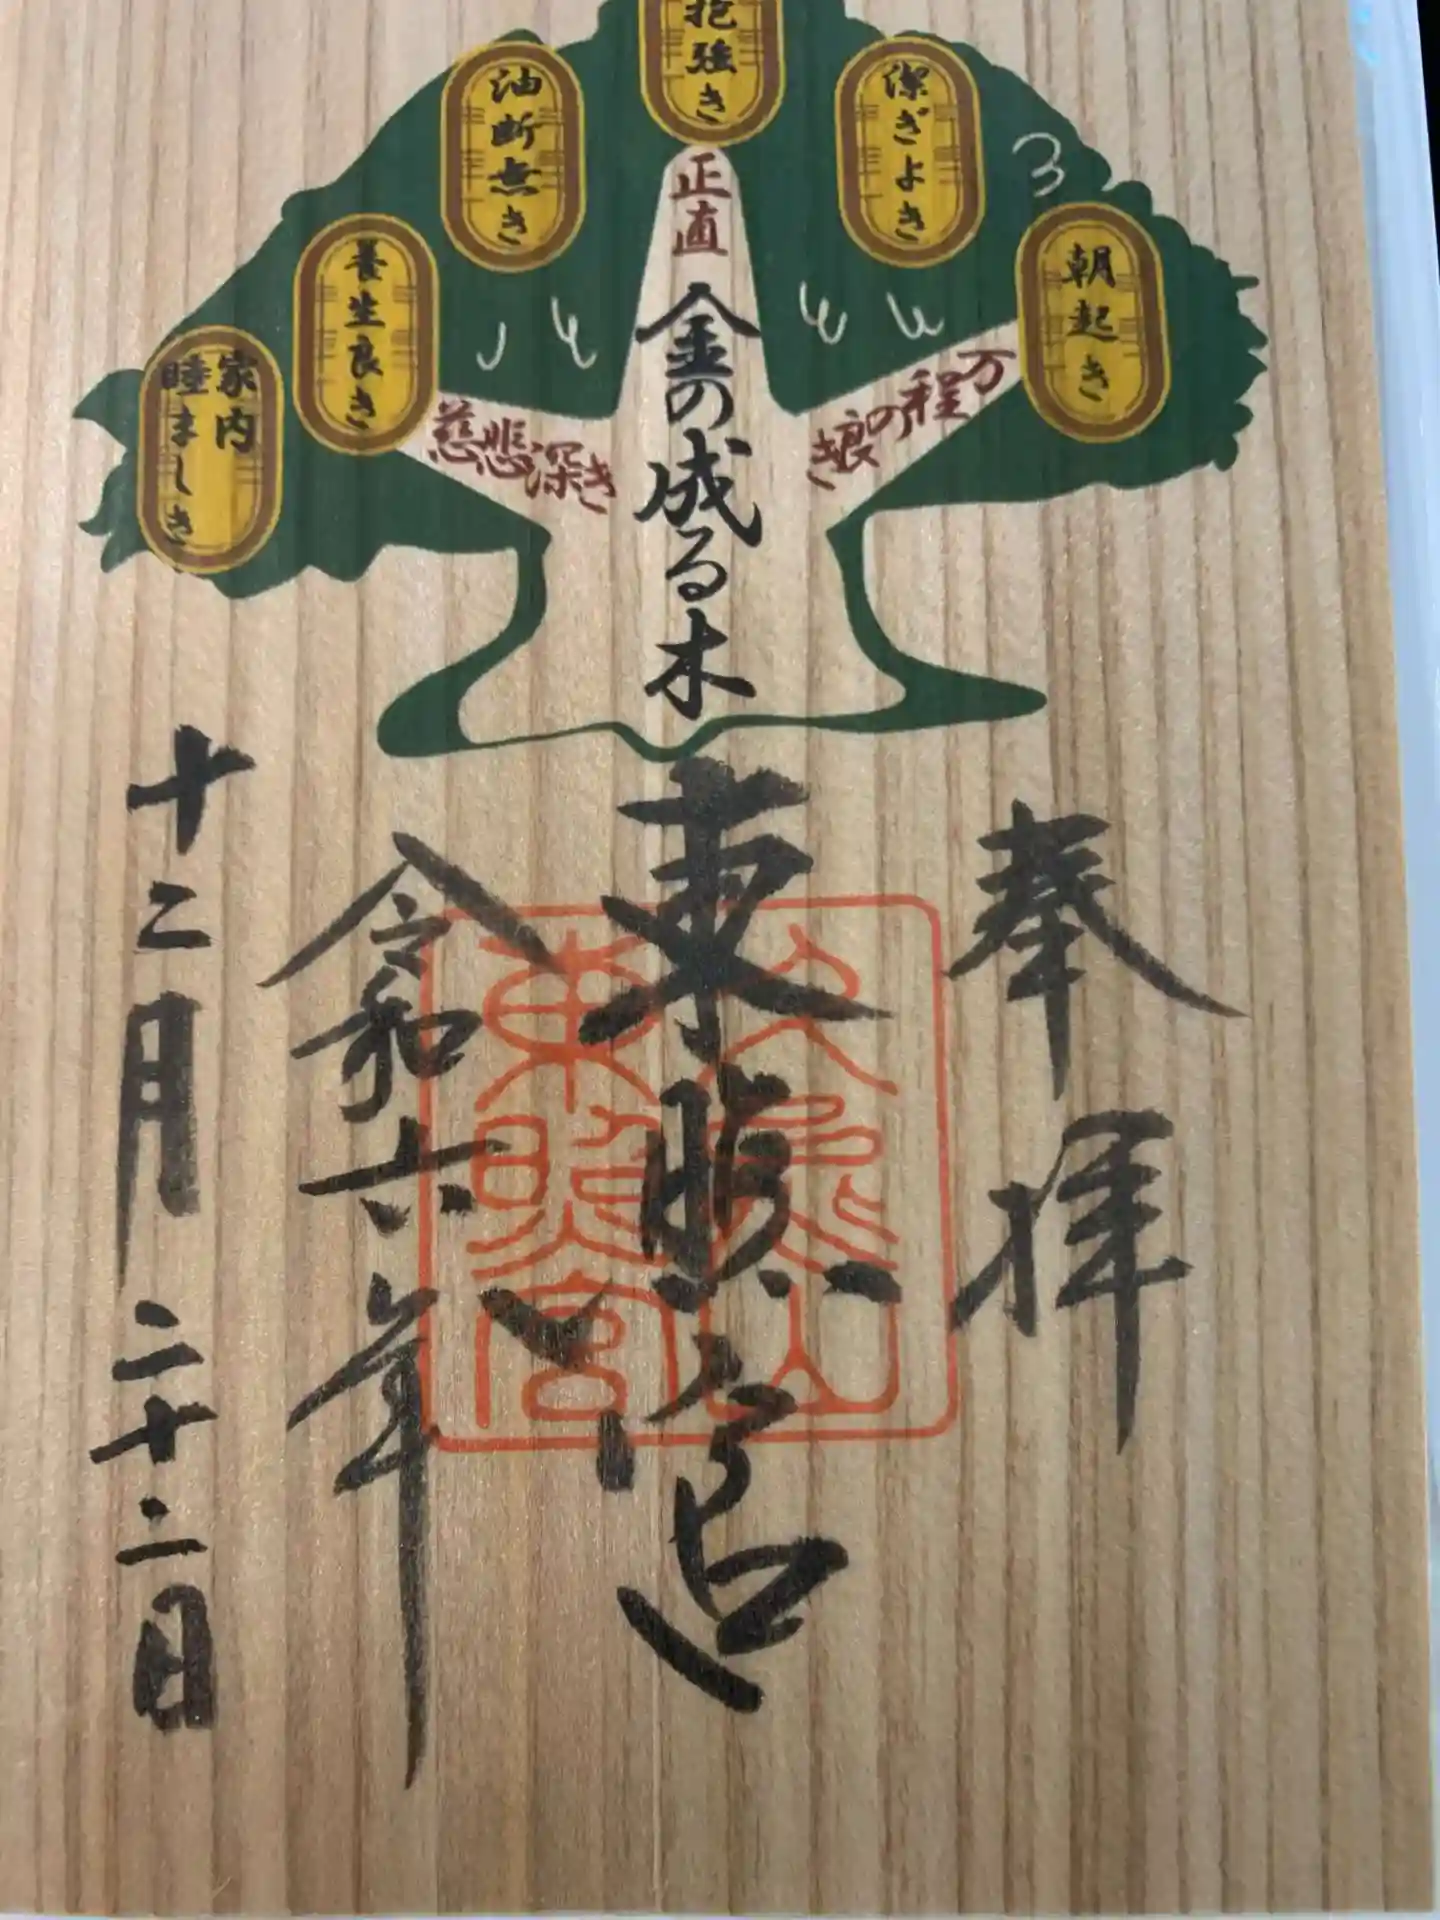 朝起き
潔ぎよき
抱強き
油断無き
養生良き
家内
睦ましき
万程の良き
正直
慈悲深き
金の成る木
奉拝
東照宮
令和六年
十二月二十二日
久能山
東照宮